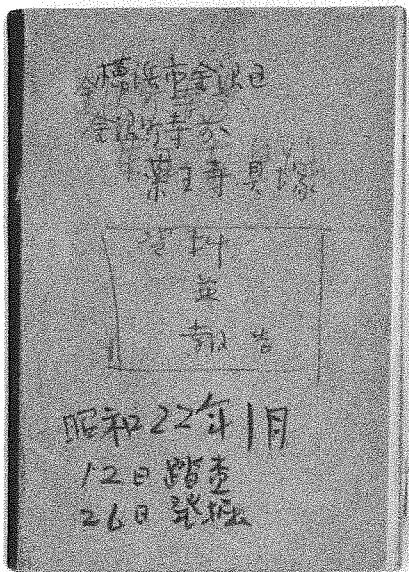 横浜市金沢区
金沢町寺前
薬王寺貝塚
資料
並
報告
昭和22年1月
12日踏査
26日発掘